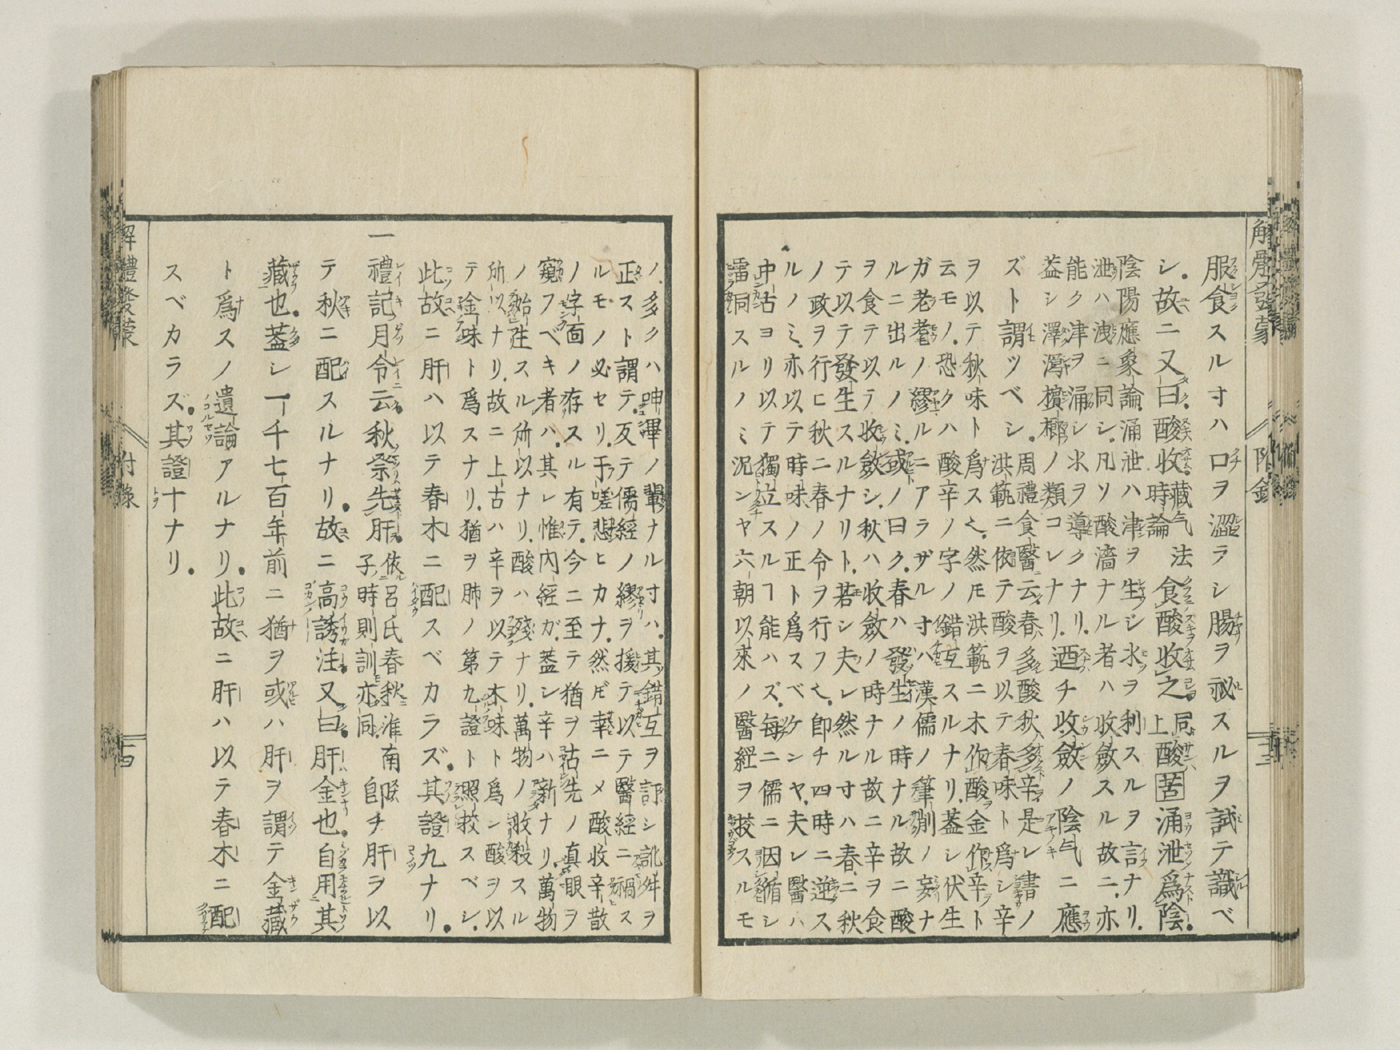 解體發蒙
附錄
十三
服食スル寸ハ口ヲ澀ラシ腸ヲ祕スルヲ試テ識ベ
シ故ニ又曰酸收藏气法時論食酸收之同上酸苦涌泄爲陰
陰陽應象論涌泄ハ津ヲ生シ水ヲ利スルヲ言ナリ
泄ハ洩ニ同シ凡ソ酸濇ナル者ハ收斂スル故ニ亦
能ク津ヲ涌シ水ヲ導クナリ迺チ收斂ノ陰气ニ應
葢シ澤瀉檳榔ノ類コレナリ
ズト謂ツベシ周禮食醫云春多酸秋多辛是レ書ノ
洪範ニ依テ酸ヲ以テ春味ト爲シ辛
ヲ以テ秋味ト爲ス然モ洪範ニ木作酸金作辛ト
云モノ恐クハ酸辛ノ字ノ錯互スルナリ葢シ伏生
ガ老耄ノ繆ルニアラザル寸ハ漢儒ノ筆削ノ妄ナ
ルニ出ルノミ或ノ曰ク春ハ發生ノ時ナル故ニ酸
ヲ食テ以テ收斂シ秋ハ收斂ノ時ナル故ニ辛ヲ食
テ以テ發生スルナリト若シ夫レ然ル寸ハ春ニ秋
ノ政ヲ行ヒ秋ニ春ノ令ヲ行フ卽チ四時ニ逆ス
ルノミ亦以テ時味ノ正ト爲スベケンヤ夫レ醫ハ
中古ヨリ以テ獨立スルヿ能ハズ每ニ儒ニ因循シ
雷同スルノミ況ンヤ六朝以來ノ醫經ヲ挍スルモ
ノ多クハ呻畢ノ輩ナル寸ハ其錯互ヲ訂シ訛舛ヲ
正スト謂テ反テ儒經ノ繆ヲ援テ以テ醫經ニ禍ス
ルモノ必セリ于嗟悲ヒカナ然ドモ幸ニメ酸收辛散
ノ字面ノ存スル有テ今ニ至テ猶ヲ沽先ノ真眼ヲ
窺フベキ者ハ其レ惟內經ガ葢シ辛ハ新ナリ萬物
ノ始生スル所以ナリ酸ハ殘ナリ萬物ノ收殺スル
所以ナリ故ニ上古ハ辛ヲ以テ木味ト爲ン酸ヲ以
テ金味ト爲スナリ猶ヲ肺ノ第九證ト照挍スベシ
此故ニ肝ハ以テ春木ニ配スベカラズ其證九ナリ
一禮記月令云秋祭先肝依呂氏春秋淮南子時則訓亦同卽チ肝ヲ以
テ秋ニ配スルナリ故ニ高誘注又曰肝金也自用其
藏也葢シ一千七百年前ニ猶ヲ或ハ肝ヲ謂テ金藏
ト爲スノ遺論アルナリ此故ニ肝ハ以テ春木ニ配
スベカラズ其證十ナリ
解體發蒙
付錄
十四